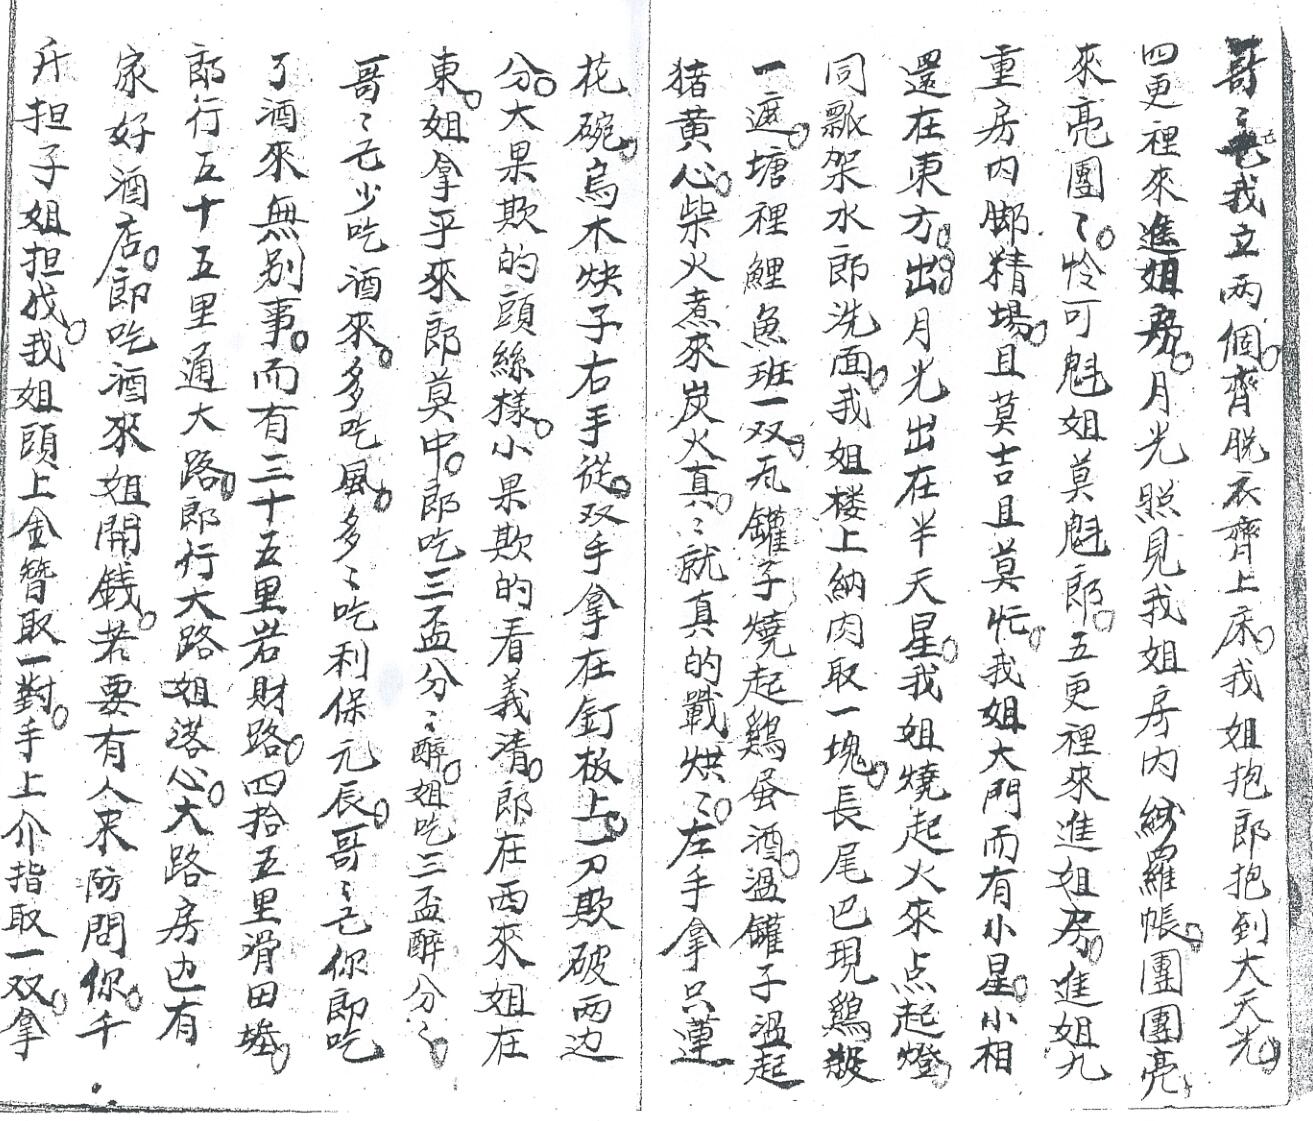 哥〻毛我立两個。齊脫衣齊上床。我姐抱郎抱到大天光。
四更裡來進姐房。月光照見我姐房内紗羅帳。團團亮
來亮團〻。怜可魁姐莫魁郎。五更裡來進姐房。進姐九
重房内脚精場。且莫吉且莫忙。我姐大門而有小星。小相
還在東方。出月光出在半天星。我姐燒起火來点起燈。
同瓢架水郎洗面。我姐楼上納肉取一塊。長尾巴現鷄殺
一遮。塘裡鯉魚班一双。瓦罐子燒起鷄蛋酒。温罐子温起
猪黄心。柴火煮來炭火真。〻就真的戰烘〻。左手拿只蓮
花碗。烏木快子右手從。双手拿在釘板上。一刀欺破两边
分。大果欺的頭絲樣。小果欺的看義清。郎在西來姐在
東。姐拿乎來郎莫中。郎吃三盃分〻醉。姐吃三盃醉分〻。
哥〻毛少吃酒來。多吃風。多〻吃利保元辰。哥〻毛你郎吃
了酒來無别事。而有三十五里岩財路。四拾五里滑田塍。
郎行五十五里通大路。郎行大路姐落心。大路房边有
家好酒店。郎吃酒來姐開錢。若要有人来防問你。千
斤担子姐担伐。我姐頭上金簪取一對。手上介指取一双。拿